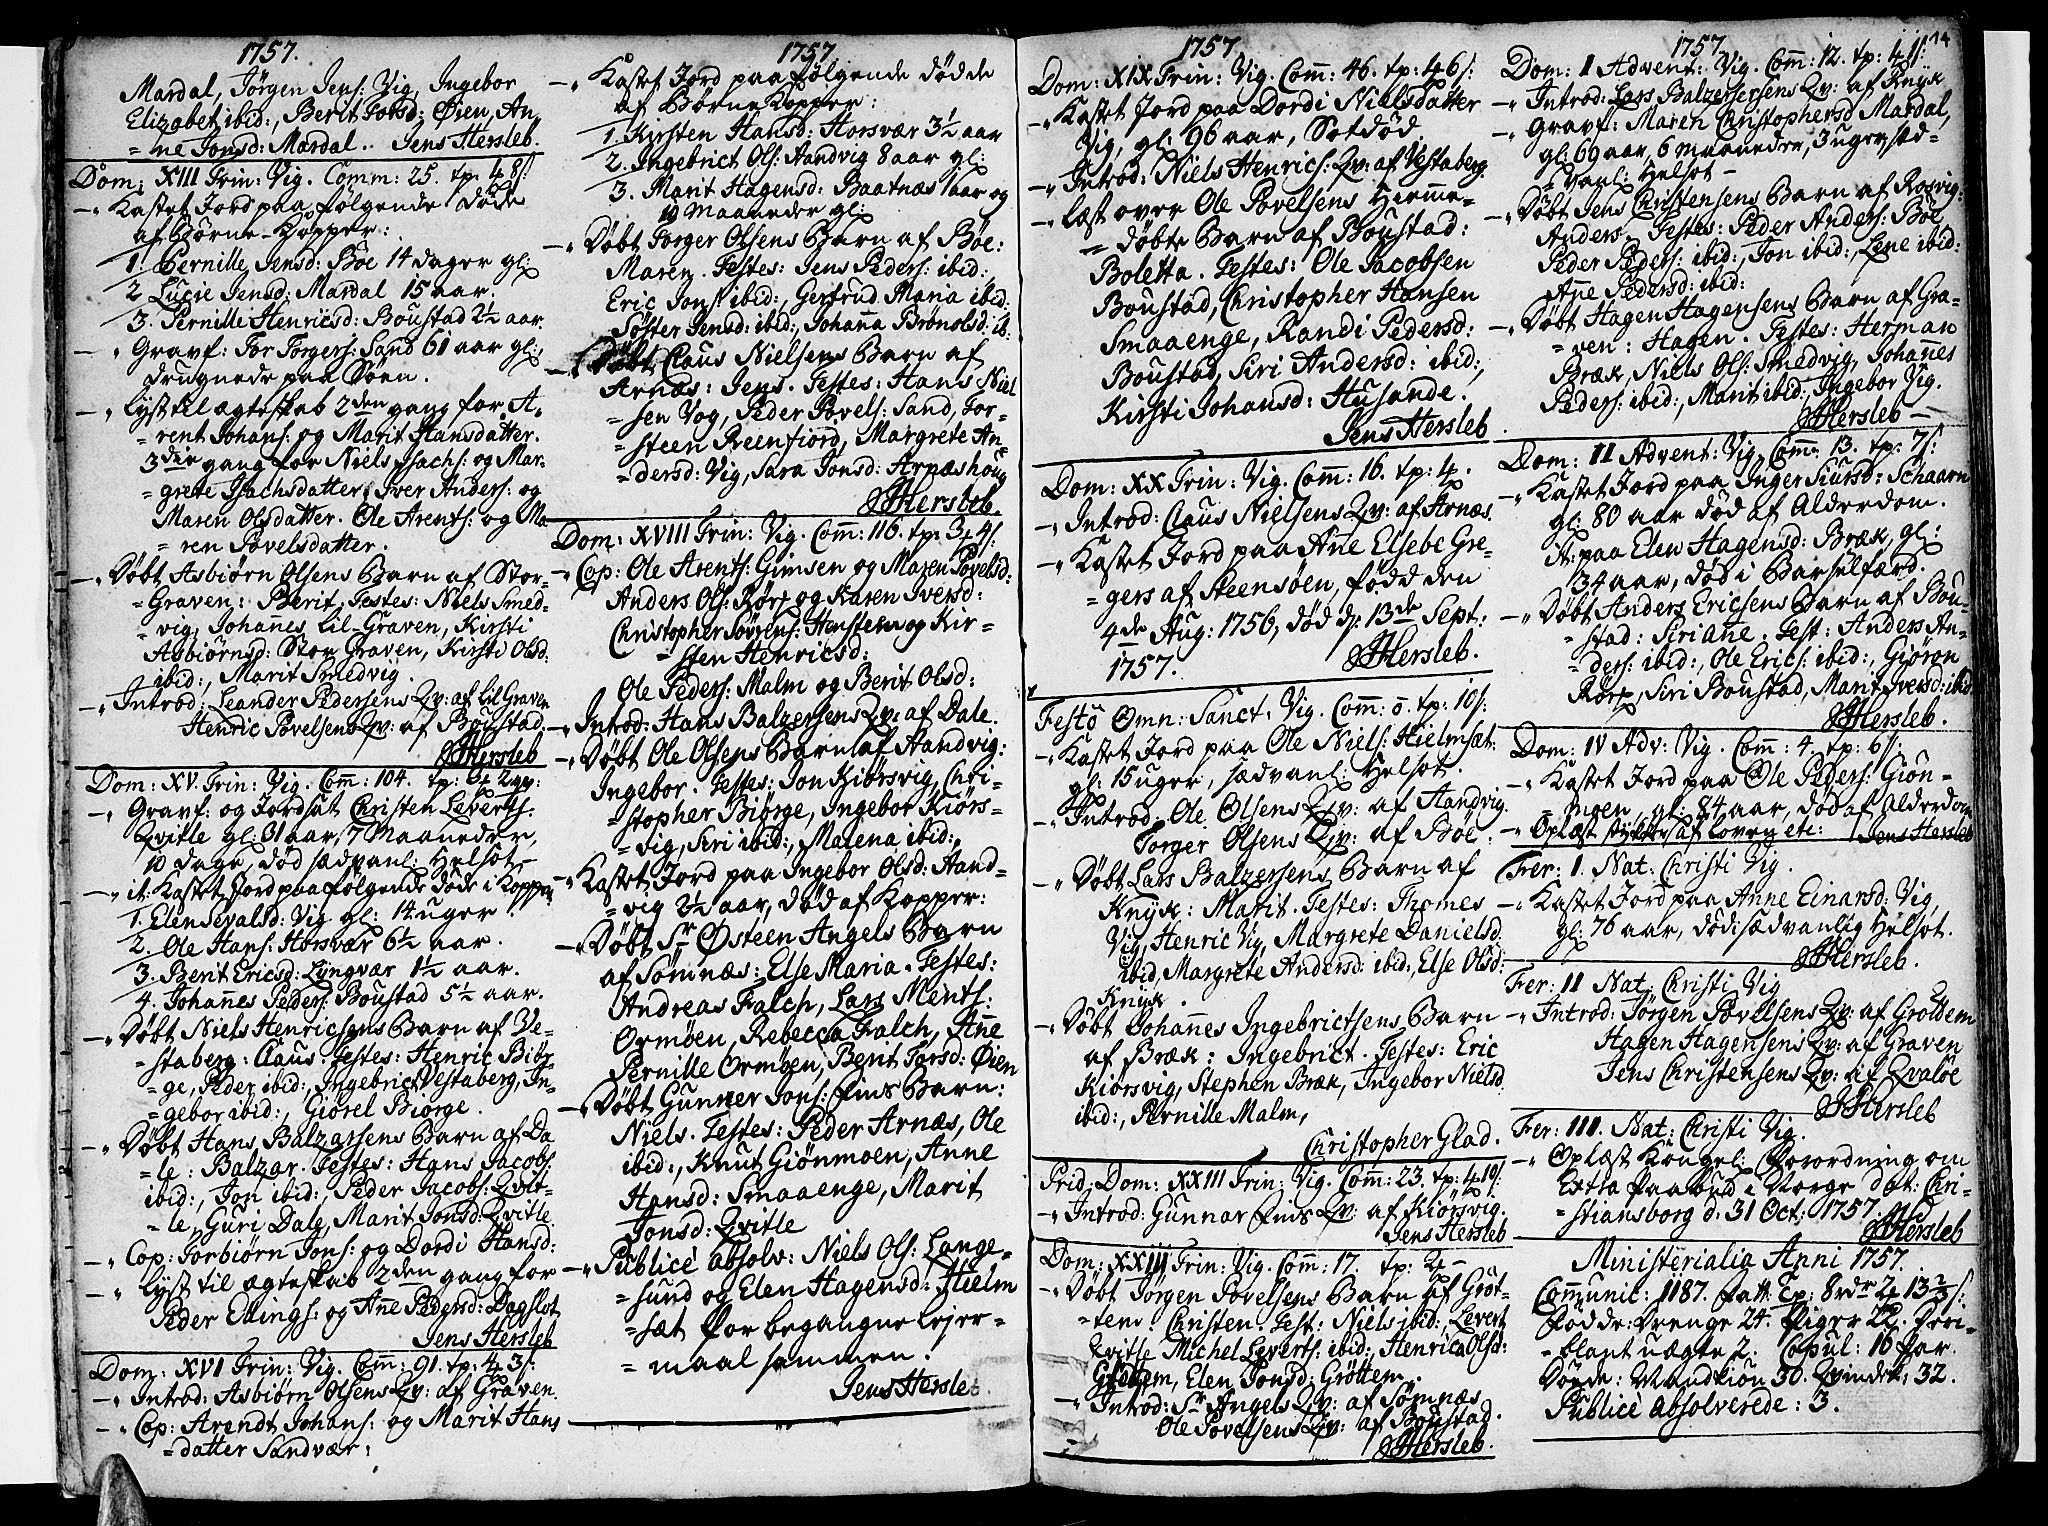 1757.
Mardal, Jörgen Jens: Vig, Ingebor
Elizabet ibid:, Berit Joensd: Øien, An,
=ne Jonsd: Mardal.. Jens Hersleb.
Dom: XIII Trin: Vig. Comm: 25. tp: 4 8/:
-" Kastet Jord paa følgende døde
af Børne-Kopper:
1. Pernille Jensd: Bøe 14 dager gl:
2 Lucie Jensd: Mardal 15 aar.
3. Pernille Henricsd: Boustad 2½ aar.
-" Gravf: Tor Torgers: Sand 61 aar gl:,
drugnede paa Søen.
-" Lyst til ægteskab 2den gang for A,
=rent Johans: og Marit Hansdatter.
3die gang for Niels Isachs: og Mar=
=grete Isachsdatter, Iver Anders: og
Maren Olsdatter. Ole Arents: og Ma
=ren Povelsdatter.
-" Døbt Asbiørn Olsens Barn af Stor-
=Graven: Berit. Testes: Niels Smed=
=vig, Johannes Lil-Graven, Kirsti
Asbiørnsd: Stor Graven, Kirsti Olsd:
ibid:, Marit Smedvig.
-" Introd: Leander Pedersens Qv: af Lil Graven
Henric Povelsens Qv: af Boustad.
JHersleb
Dom: XV. Trin: Vig. Comm: 104. tp:
-" Gravf: og Jordsat Christen Leverts:
Qvitle gl: 31 aar, 7 Maaneder,
10 dage, død sædvanl: Helsot,
-" it: Kastet Jord paa følgende døde i Kopper
1. Elen Sevalsd: Vig gl: 14 uger.
2. Ole Hans: Horsvær 6½ aar.
3. Berit Ericsd: Lyngvær 1½ aar.
4. Johannes Peders: Boustad 5½ aar.
-" Døbt Niels Henricsens Barn af Ve-
=staberg: Claus. Testes: Henric Biør-
=ge, Peder ibid:, Ingebrict Vestaberg, In-
=gebor ibid:, Giørel Biørge.
-" Døbt Hans Balzarsens Barn af Da
=le: Balzar. Testes: Hans Jacobs:
ibid:, Jon ibid:, Peder Jacobs: Qvit-
=le, Guri Dale, Marit Jonsd: Qvitle.
-" Cop: Torbiørn Jons: og Dordi Hansd:
-" Lyst til ægteskab 2den gang for
Peder Ellings: og Ane Pedersd: Dagslot
Jens Hersleb
Dom: XVI Trin: Vig. Comm: 91. tp: 4 3/:
-" Introd: Asbiørn Olsens Qv: af Graven.
-" Cop: Arendt Johans: og Marit Hans
=datter Sandvær:
1757
-" Kastet Jord paa følgende dødde
af Børne Kopper:
1. Kirsten Hansd: Horsvær 3½ aar
2. Ingebrict Ols: Aandvig 8 aar gl:
3. Marit Hagensd: Baatnæs 1 aar og
10 Maaneder gl:
-" Døbt Torger Olsens Barn af Bøe:
Maren. Testes: Jens Peders: ibid:
Eric Jons: ibid:, Gertrud Maria ibid:
Søster Jensd: ibid:, Johanna Brønolsd: ib:
-" Døbt Claus Nielsens Barn af
Arnæs: Jens. Testes: Hans Niel
=sen Vog, Peder Povels: Sand, Tor-
=steen Reenfiord, Margrete An
=dersd: Vig, Sara Jonsd: Arnæshoug
JHersleb.
Dom: XVIII Trin: Vig. Comm: 116. tp: 3 4/:
-" Cop: Ole Arents: Gimsen og Maren Povelsd:
Anders Ols: Rørp og Karen Iversd:
Christopher Sørens: Henstem og Kir-
=sten Henricsd:
Ole Peders: Malm og Berit Olsd:
-" Introd: Hans Balzersens Qv: af Dale.
-" Døbt Ole Olsens Barn af Aandvig:
Ingebor. Testes: Jon Kiørsvig, Chri-
=stopher Biørge, Ingebor Kiørs-
=vig, Siri ibid:, Malena ibid:,
-" Kastet Jord paa Ingebor Olsd: Aand-
=vig 2½ aar, død af Kopper:
-" Døbt Sr Østeen Angels Barn
af Sømnæs: Else Maria. Testes:
Andreas Falch, Lars Ments:
Ormøen, Rebecca Falch, Anne
Pernille Ormøen, Berit Torsd: Øien
-" Døbt Gunner Jons: Fins Barn:
Niels. Testes: Peder Arnæs, Ole
ibid:, Knut Giønmoen, Anne
Hansd: Smaaenge, Marit
Jonsd: Qvitle
-" Publicè absolv: Niels Ols: Lange-
=sund og Elen Hagensd: Hielm
=sæt for begangne Lejer-
=maal sammen.
Jens Hersleb.
1757
Dom: XIX Trin: Vig. Comm: 46. tp: 4 6/:
-" Kastet Jord paa Dordi Nielsdatter
Vig, gl: 96 aar, Sotdød.
-" Introd: Niels Henrics: Qv: af Vestaberg.
-" Læst over Ole Povelsens Hiemme-
=døbte Barn af Boustad:
Boletta. Testes: Ole Jacobsen
Boustad, Christopher Hansen
Smaaenge, Randi Pedersd:
Boustad, Siri Andersd: ibid:,
Kirsti Johansd: Husande.
Jens Hersleb
Dom: XX Trin: Vig. Comm: 16. tp: 4.
-" Introd: Claus Nielsens Qv: af Arnæs.
-" Kastet Jord paa Anne Elsebe Gre-
=gers af Steensøen, fødd den
4de Aug: 1756, død d: 13de Sept:
1757.
JHersleb.
Festô Omn: Sanct: Vig. Comm: o. tp: 10/:
-" Kastet Jord paa Ole Niels: Hielmsæt:
gl: 15 uger, sædvanl: Helsot.
-" Introd: Ole Olsens Qv: af Aandvig.
Torger Olsens Qv: af Bøe.
-" Døbt Lars Balzersens Barn af
Knyk: Marit. Testes: Thomes
Vig, Henric Vig, Margrete Danielsd
ibid, Margrete Andersd: ibid:, Else Olsd:
Knyk.
-" Døbt Johannes Ingebrictsens Barn
af Bræk: Ingebrict. Testes: Eric
Kiørsvig, Stephen Bræk, Ingebor Nielsd
ibid:, Pernille Malm,
Christopher Glad.
Prid, Dom: XXIII Trin: Vig. Comm: 23. tp: 4 10/:
-" Introd: Gunnar Fins Qv: af Kiørsvig.
Jens Hersleb
Dom: XXIII Trin: Vig. Comm: 17. tp: 2
-" Døbt Jørgen Povelsens Barn af Grøt-
=tem: Christen. Test: Niels ibid:, Levert
Qvitle Michel Leverts: ibid:, Henrica Olsd:
Grøttem, Elen Jonsd: Grøttem.
-" Introd: Sr Angels Qv: af Sømnæs
Ole Povelsens Qv: af Boustad.
JHersleb.
1757
14
Dom: I Advent: Vig. Comm: 12. tp: 4 1/:
-" Introd: Lars Balzersens Qv: af Knyk
-" Gravf: Maren Christophersd Mardal,
gl: 69 aar, 6 maaneder, 3 uger, sæd-
=vanl: Helsot -
-" Døbt Jens Christensens Barn af Rosvig:
Anders. Testes: Peder Anders: Bøe
Peder Peders: ibid:, Jon ibid:, Lene ibid:
Ane Pedersd: ibid:
-" Døbt Hagen Hagensens Barn af Gra-
=ven: Hagen. Testes: Herman
Bræk, Niels Ols: Smedvig, Johannes
Peders: ibid:, Marit ibid:, Ingebor Vig.
JHersleb -
Dom: II Advent: Vig. Comm: 13. tp: 7/:
-" Kastet Jord paa Inger Siursd: Schaarn
gl: 80 aar død af Alderdom.
it: paa Elen Hagensd: Bræk, gl:
34 aar, død i Barselfærd.
-" Døbt Anders Ericsens Barn af Bou-
=stad: Siriane. Test: Anders An-
=ders: ibid:, Ole Erics: ibid:, Giøron
Rørp, Siri Boustad, Marit Iversd: ibid
JHersleb.
Dom: IV Adv: Vig. Comm: 4. tp: 6/:
-" Kastet Jord paa Ole Peders: Giøn-
=moen, gl: 84 aar, død af Alderdom
-" Oplæst stykker af Loven etc: Jens Hersleb
Fer: 1. Nat: Christi Vig.
-" Kastet Jord paa Anne Einarsd: Vig,
gl: 76 aar, død: sædvanlig Helsot.
JHersleb.
Fer: II Nat: Christi Vig
-" Introd: Jörgen Povelsens Qv: af Grøttem
Hagen Hagensens Qv: af Graven
Jens Christensens Qv: af Qvaløe
JHersleb
Fer: III. Nat: Christi Vig.
-" Oplæst Kongel: Forordning om
Extra Paabud i Norge dat: Chri-
=stiansborg d: 31 Oct: 1757.
JHersleb
Ministerialia Anni 1757.
Communic: 1187. Patt: Tp: 8 rdr 2 13⅔/:
Fødde: Drenge 24. Piger 22. Der i-
=blant uægte 2. Copul: 16 Par.
Døde: Mandkiøn 30. Qvindek: 32.
Publicè absolverede: 3.